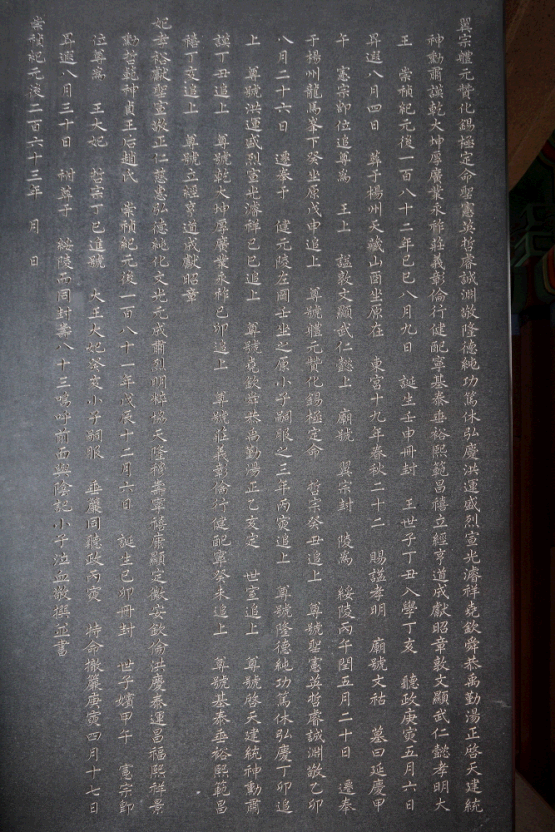 翼宗體元贊化錫極定命聖憲英哲睿誠淵敬隆德純功篤休弘慶洪運盛烈宣光濬祥堯欽舜恭禹勤湯正啓天建統
神勳肅謨乾大坤厚廣業永祚莊義彰倫行健配寧基泰垂裕熙範昌禧立經亨道成獻昭章敦文顯武仁懿孝明大
王 崇禎紀元後一百八十二年己巳八月九日 誕生壬申冊封 王世子丁丑入學丁亥 聽政庚寅五月六日
昇遐八月四日 葬于楊州天藏山酉坐原在 東宮十九年春秋二十二 賜諡孝明 廟號文祜 墓曰延慶甲
午 憲宗卽位追尊爲 王上 諡敦文顯武仁懿上 廟號 翼宗封 陵爲 綏陵丙午閏五月二十日 遷奉
于楊州龍馬峯下癸坐原戊申追上 尊號體元贊化錫極定命 哲宗癸丑追上 尊號聖憲英哲睿誠淵敬乙卯
八月二十六日 遷奉于 健元陵左岡壬坐之原小子嗣服之三年丙寅追上 尊號隆德純功篤休弘慶丁卯追
上 尊號洪運盛烈宣光濬祥己巳追上 尊號堯欽舜恭禹勤湯正乙亥定 世室追上 尊號啓天建統神勳肅
謨丁丑追上 尊號乾大坤厚廣業永祚己卯追上 尊號莊義彰倫行健配寧癸未追上 尊號基泰垂裕熙範昌
禧丁亥追上 尊號立經亨道成獻昭章
妃孝裕獻聖宣敬正仁慈惠弘德純化文光元成肅烈明粹協天隆穆壽寧禧康顯定徽安欽倫洪慶泰運昌福熙祥景
勳哲範神貞王后趙氏 崇禎紀元後一百八十一年戊辰十二月六日 誕生己卯冊封 世子嬪甲午 憲宗卽
位尊爲 王大妃 哲宗丁巳進號 大王大妃癸亥小子嗣服 垂簾同聽政丙寅 特命撤簾庚寅四月十七日
昇遐八月三十日 祔葬于 綏陵而同封壽八十三嗚呼前面與陰記小子泣血敬撰並書
崇禎紀元後二百六十三年 月 日